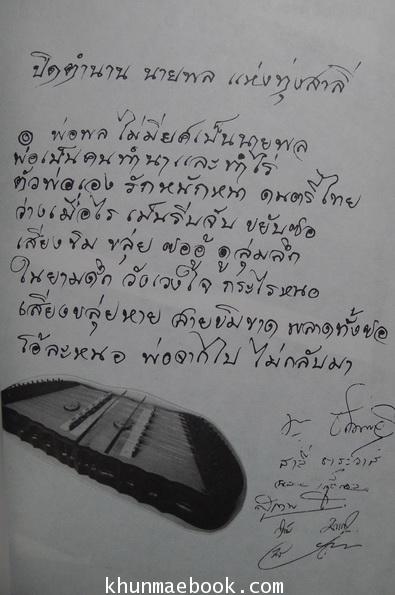 ปิดตำนาน นายพล แห่งทุ่งสาลี
๏ พ่อพล ไม่มียศเป็นนายพล
พ่อเป็นคนทำนาและทำไร่
ตัวพ่อเอง รักหนักหนา ดนตรีไทย
ว่างเมื่อไร เป็นรีบจับ ขยับซอ
เสียงขิม ขลุ่ย ซออู้ ดูลุ่มลึก
ในยามดึก วังเวงใจ กระไรหนอ
เสียงขลุ่ยหาย สายขิมขาด พลาดทั้งซอ
โอ้ละหนอ พ่อจากไป ไม่กลับมา
khunmaebook.com